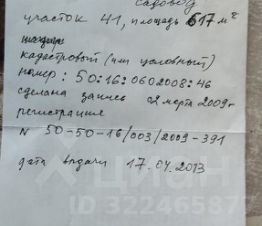 садовод
участок 41, площадь 617 м²
кадастровый (или условный)
номер: 50:16:0602008:46
сделана запись 02 марта 2009г
регистрация
N 50-50-16/003/2009-391
дата выдачи 17.04.2013
циан
ID 322465877